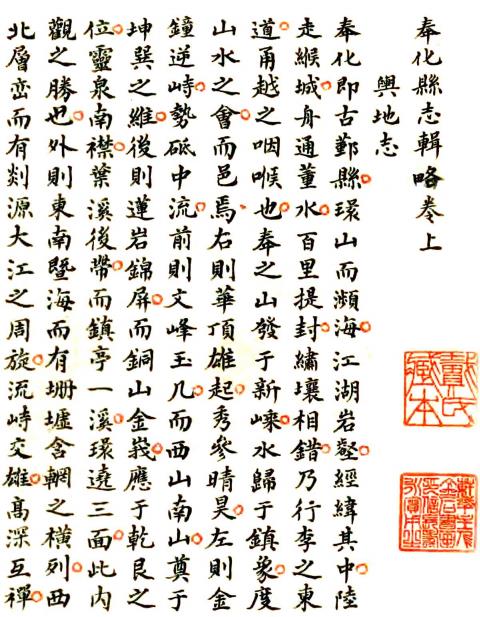 奉化縣志輯略卷上
輿地志
奉化即古鄞縣環山而瀕海江湖岩壑經緯其中陸
走緱城舟通董水百里提封繡壤相錯乃行李之東
道甬越之咽喉也奉之山發于新嵊水歸于鎮象度
山水之會而邑焉右則華頂雄起秀參晴昊左則金
鐘逆峙勢砥中流前則文峰玉几而西山南山奠于
坤巽之維後則蓮岩錦屏而銅山金峩應于乾艮之
位靈泉南襟葉溪後帶而鎮亭一溪環遶三面此内
觀之勝也外則東南暨海而有墟含輞之橫列西
北層巒而有剡源大江之周旋流峙交雄高深互禪